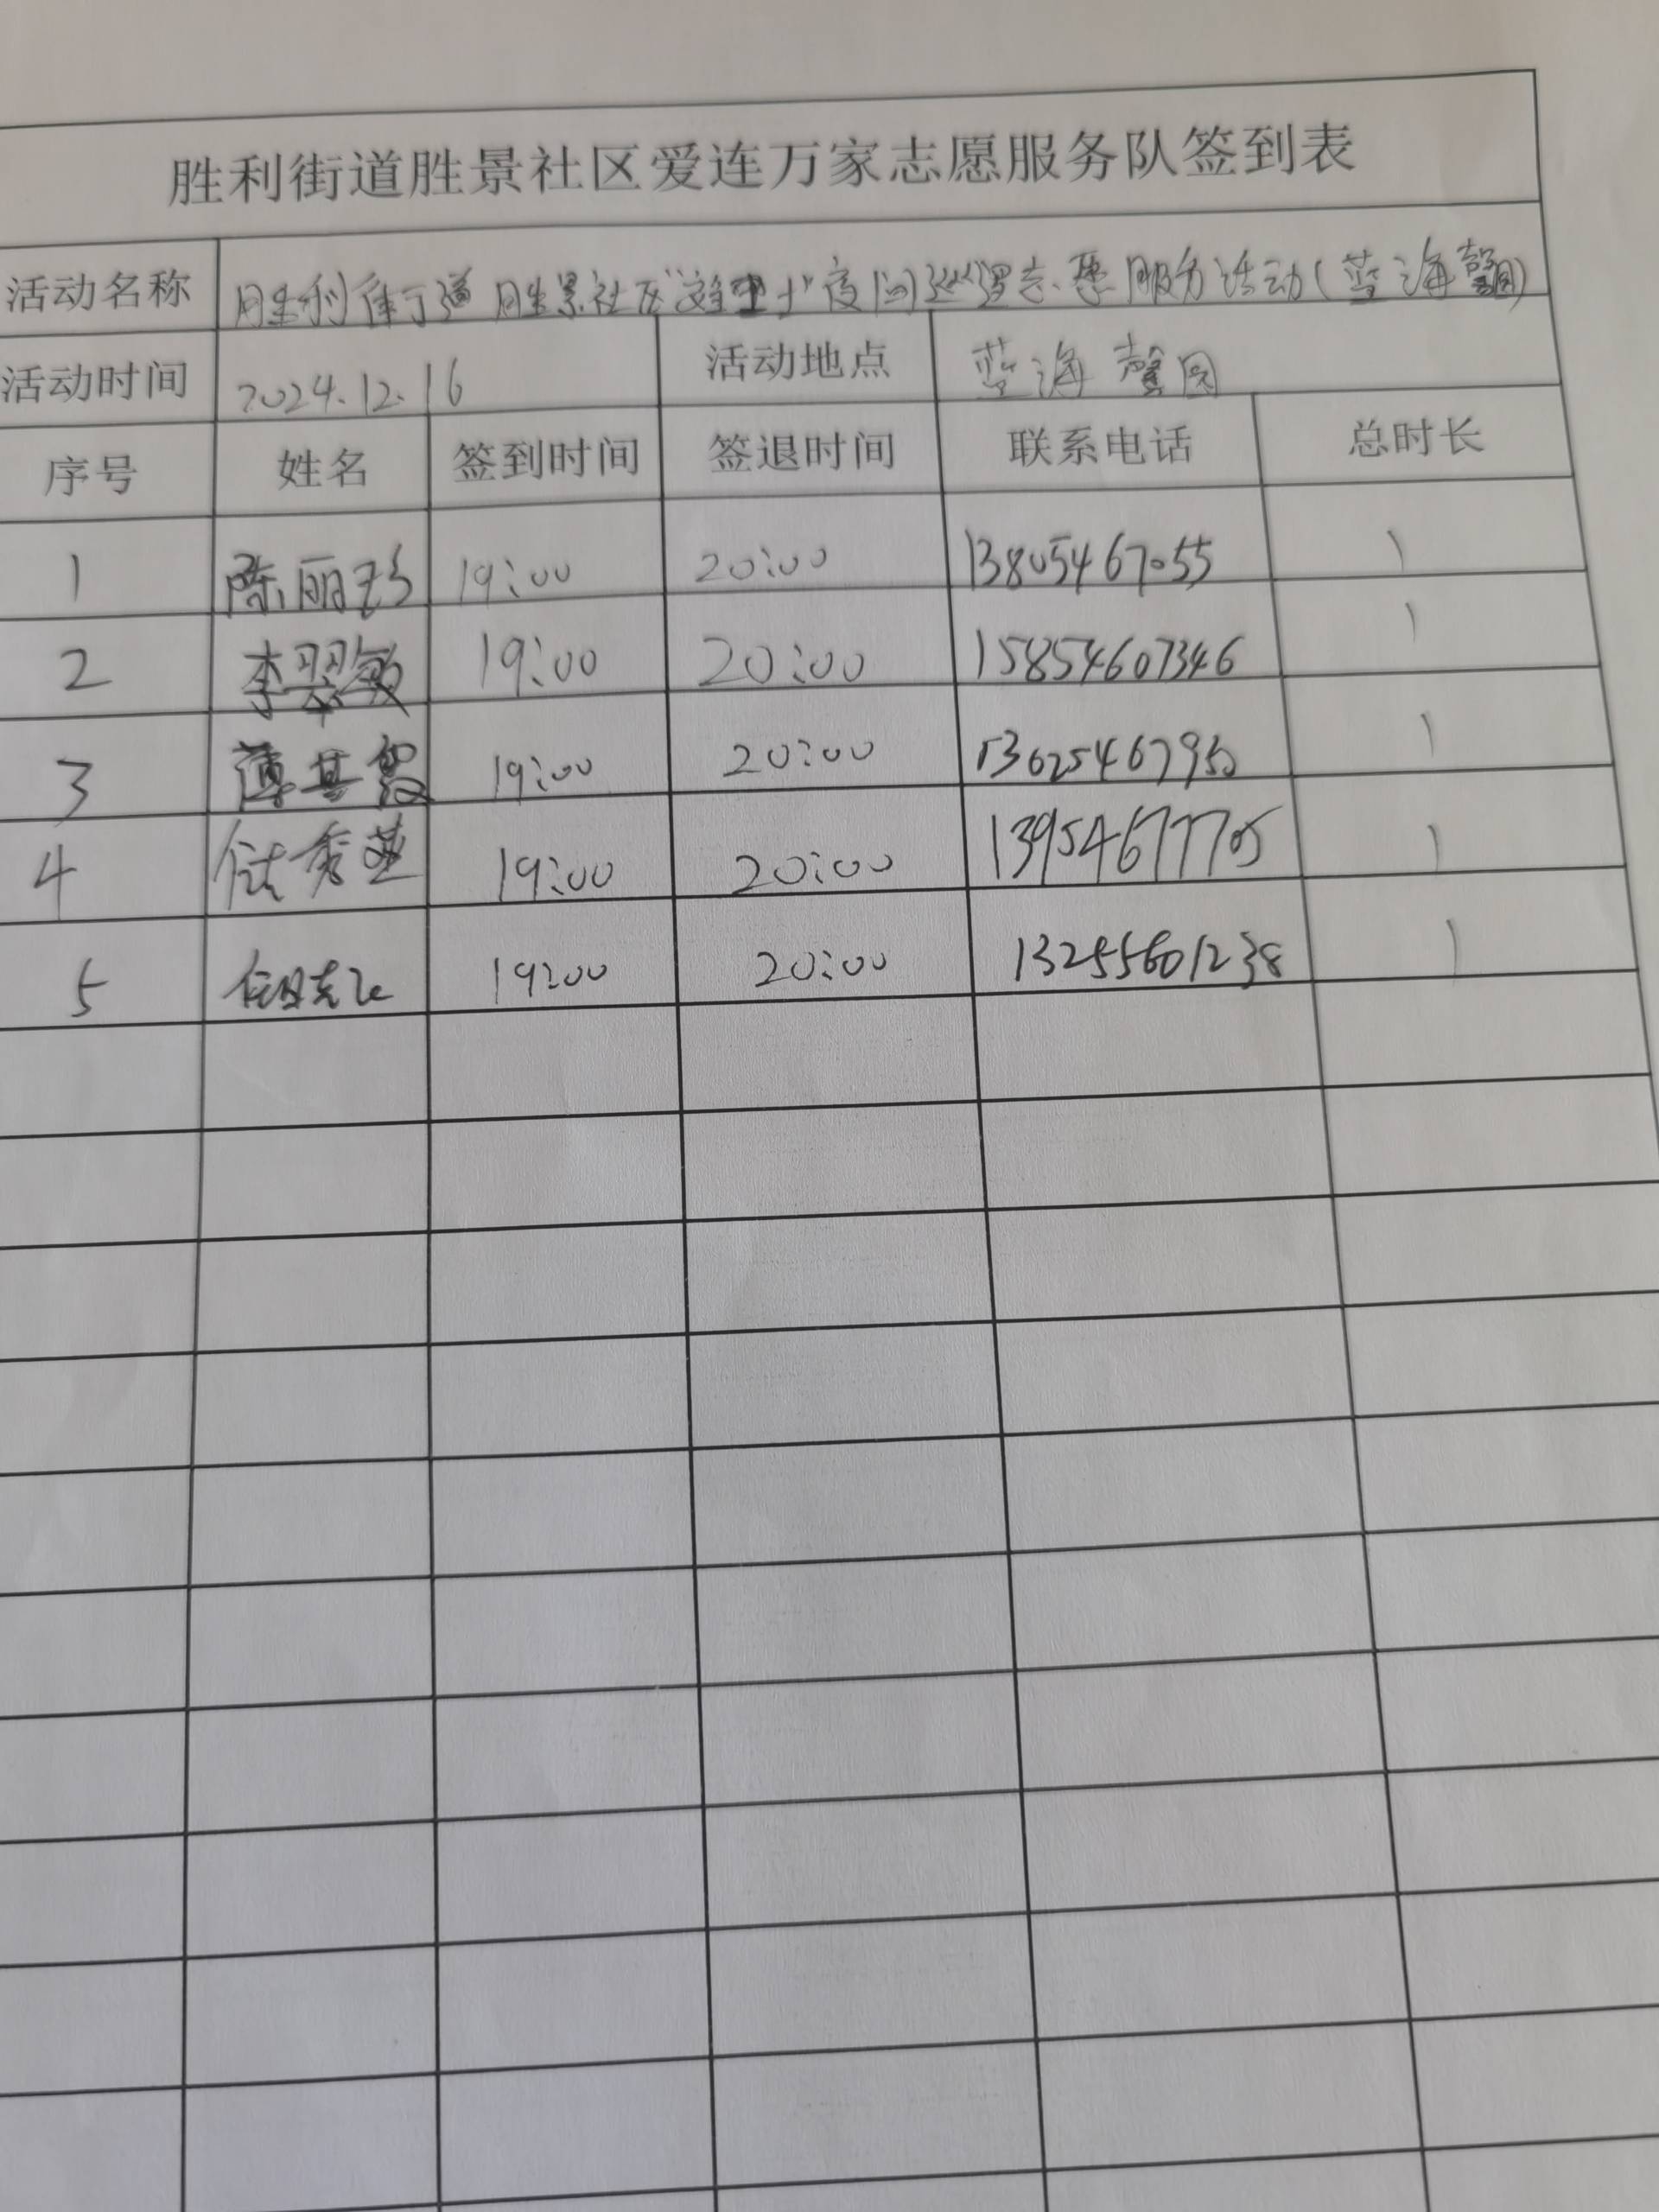 胜利街道胜景社区爱连万家志愿服务队签到表
活动名称 胜利街道胜景社区"雄卫士"夜间巡逻志愿服务活动(蓝海馨园)
活动时间 2024.12.16 活动地点 蓝海馨园
序号 姓名 签到时间 签退时间 联系电话 总时长
1 陈丽 19:00 20:00 13805467055 1
2 李翠敏 19:00 20:00 15854607346 1
3 薄其 19:00 20:00 1
4 秀燕 19:00 20:00 13954677705 1
5 19:00 20:00 13255601238 1